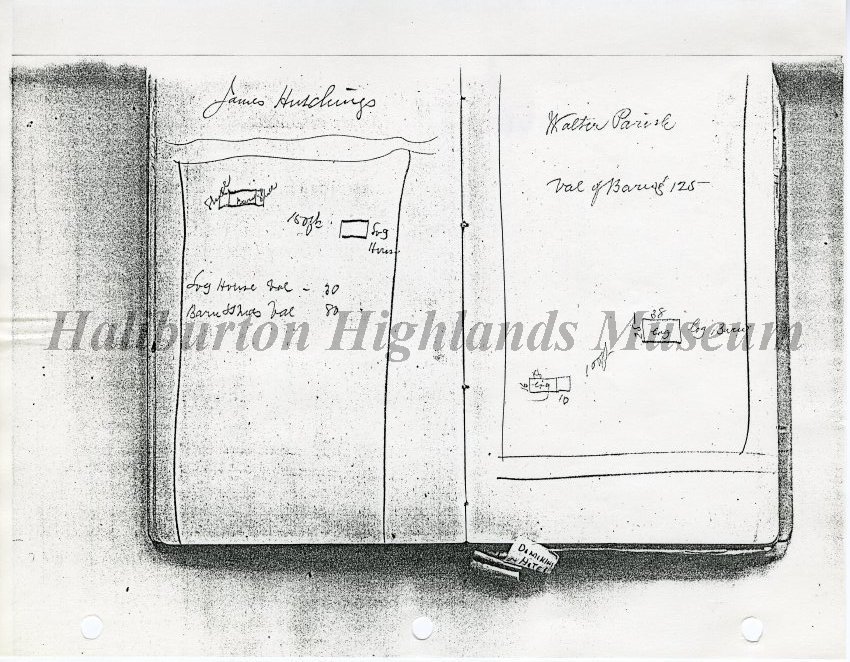 James Hutchings
100 ft
Log
House
Log House Val - 30
Barn & Shed Val 80
Walter Parish
Val of Barn 125-
38
Log
Log Barn
100 ft
Log
10
DOMINION
HOTEL
Haliburton Highlands Museum